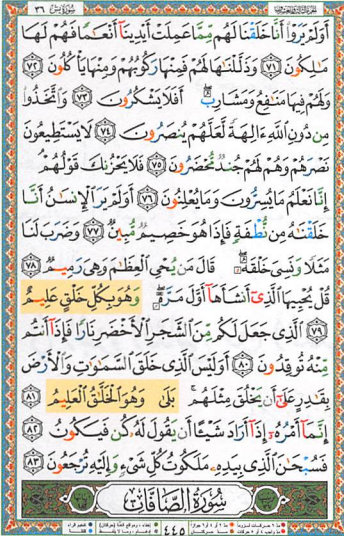 سورة يس ٣٦
أَوَلَمْ يَرَوْا۟ أَنَّا خَلَقْنَا لَهُم مِّمَّا عَمِلَتْ أَيْدِينَآ أَنْعَـٰمًا فَهُمْ لَهَا
مَـٰلِكُونَ ٧١ وَذَلَّلْنَـٰهَا لَهُمْ فَمِنْهَا رَكُوبُهُمْ وَمِنْهَا يَأْكُلُونَ ٧٢
وَلَهُمْ فِيهَا مَنَـٰفِعُ وَمَشَارِبُ ۖ أَفَلَا يَشْكُرُونَ ٧٣ وَٱتَّخَذُوا۟
مِن دُونِ ٱللَّهِ ءَالِهَةً لَّعَلَّهُمْ يُنصَرُونَ ٧٤ لَا يَسْتَطِيعُونَ
نَصْرَهُمْ وَهُمْ لَهُمْ جُندٌ مُّحْضَرُونَ ٧٥ فَلَا يَحْزُنكَ قَوْلُهُمْ ۘ
إِنَّا نَعْلَمُ مَا يُسِرُّونَ وَمَا يُعْلِنُونَ ٧٦ أَوَلَمْ يَرَ ٱلْإِنسَـٰنُ أَنَّا
خَلَقْنَـٰهُ مِن نُّطْفَةٍ فَإِذَا هُوَ خَصِيمٌ مُّبِينٌ ٧٧ وَضَرَبَ لَنَا
مَثَلًا وَنَسِىَ خَلْقَهُۥ ۖ قَالَ مَن يُحْىِ ٱلْعِظَـٰمَ وَهِىَ رَمِيمٌ ٧٨
قُلْ يُحْيِيهَا ٱلَّذِىٓ أَنشَأَهَآ أَوَّلَ مَرَّةٍ ۖ وَهُوَ بِكُلِّ خَلْقٍ عَلِيمٌ
٧٩ ٱلَّذِى جَعَلَ لَكُم مِّنَ ٱلشَّجَرِ ٱلْأَخْضَرِ نَارًا فَإِذَآ أَنتُم
مِّنْهُ تُوقِدُونَ ٨٠ أَوَلَيْسَ ٱلَّذِى خَلَقَ ٱلسَّمَـٰوَٰتِ وَٱلْأَرْضَ
بِقَـٰدِرٍ عَلَىٰٓ أَن يَخْلُقَ مِثْلَهُم ۚ بَلَىٰ وَهُوَ ٱلْخَلَّـٰقُ ٱلْعَلِيمُ ٨١
إِنَّمَآ أَمْرُهُۥٓ إِذَآ أَرَادَ شَيْـًٔا أَن يَقُولَ لَهُۥ كُن فَيَكُونُ ٨٢
فَسُبْحَـٰنَ ٱلَّذِى بِيَدِهِۦ مَلَكُوتُ كُلِّ شَىْءٍ وَإِلَيْهِ تُرْجَعُونَ ٨٣
سُورَةُ الصَّافَّاتِ
٤٤٥